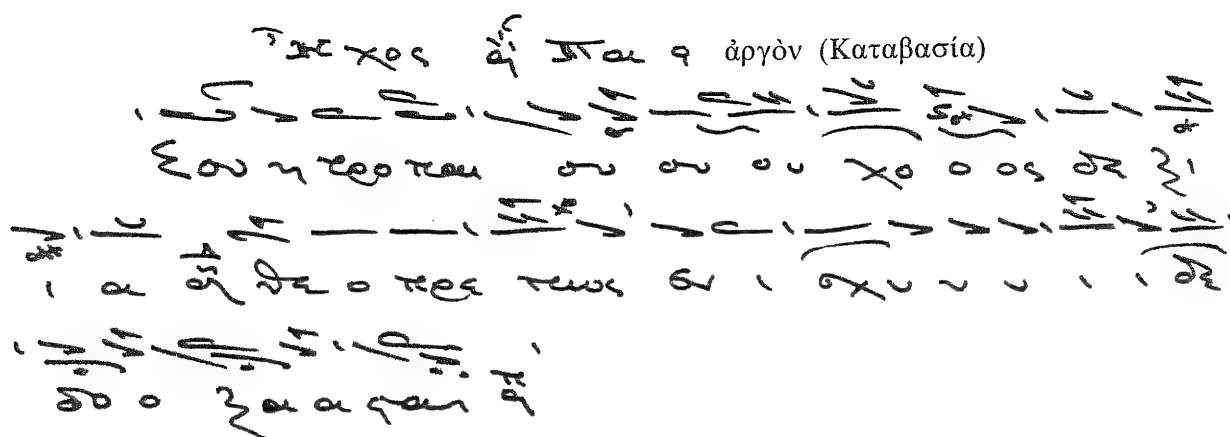 Ἦχος Πα ἀργὸν (Καταβασία)
Σου η τρο παι ου ου ου χο ο ος δε ξι
ι α θε ο πρε πως εν ι σχυ υ υ ι ι δε
δο ο ξα α σται